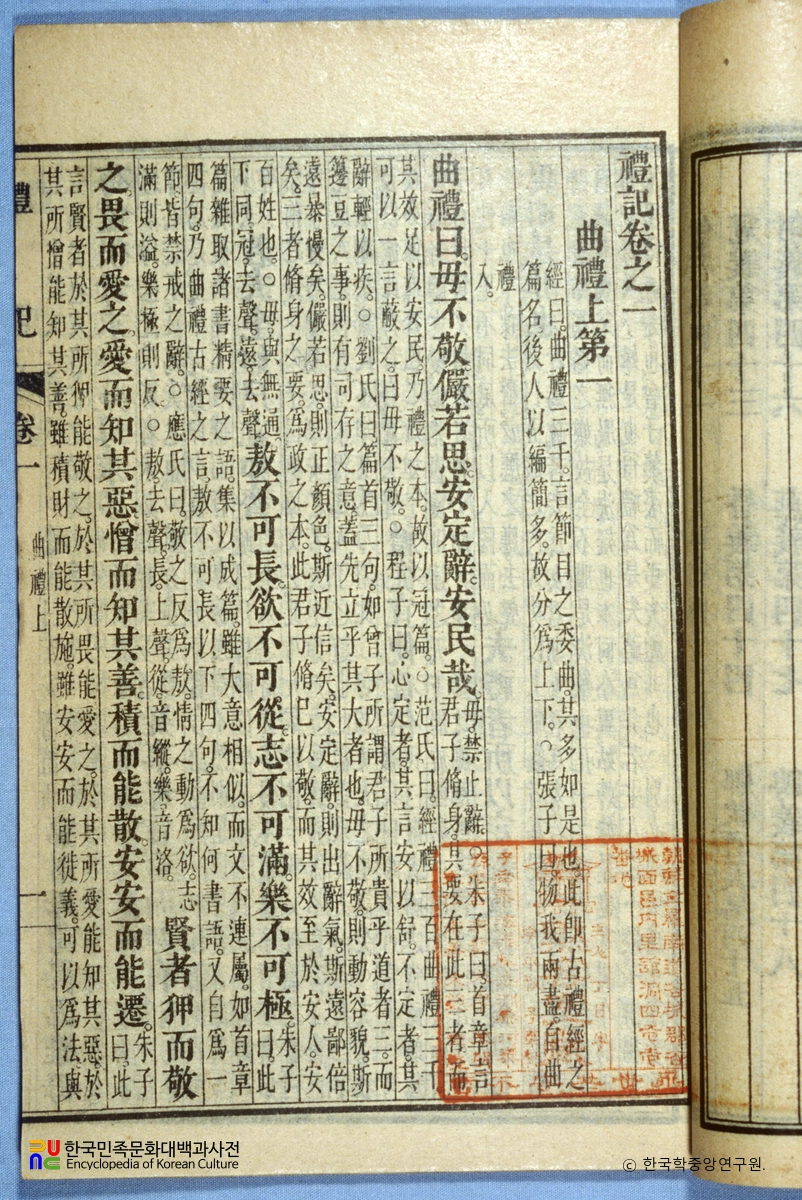 禮記卷之一
曲禮上第一
經曰。曲禮三千。言節目之委曲。其多如是也。此卽古禮經之
篇名後人以編簡多。故分爲上下。○張子曰物我兩盡。自曲
禮
入。
曲禮曰。毋不敬儼若思。安定辭。安民哉。
毋。禁止辭。○朱子曰首章言
君子脩身。其要在此三者。而
其效足以安民。乃禮之本。故以冠篇。○范氏曰。經禮三百曲禮三千
可以一言蔽之。曰毋不敬。○程子曰。心定者。其言安以舒。不定者。其
辭輕以疾。○劉氏曰篇首三句。如曾子所謂君子所貴乎道者三。而
籩豆之事。則有司存之意。蓋先立乎其大者也。毋不敬。則動容貌。斯
遠暴慢矣。儼若思。則正顏色。斯近信矣。安定辭。則出辭氣。斯遠鄙倍
矣。三者脩身之要。爲政之本。此君子脩已以敬。而其效至於安人。安
百姓也。○毋。與無通。
下同冠。去聲。遠。去聲。
敖不可長。欲不可從。志不可滿。樂不可極
朱子
曰。此
篇雜取諸書精要之語。集以成篇。雖大意相似。而文不連屬。如首章
四句。乃曲禮古經之言。敖不可長以下四句。不知何書語。又自爲一
節皆禁戒之辭。○應氏曰。敬之反爲敖。情之動爲欲。志
滿則溢。樂極則反。○敖。去聲。長。上聲。從音縱。樂音洛。
賢者狎而敬
之。畏而愛之。愛而知其惡憎而知其善。積而能散。安安而能遷。
朱子
曰。此
言賢者於其所狎能敬之。於其所畏能愛之。於其所愛能知其惡。於
其所憎能知其善。雖積財而能散施。雖安安而能徙義。可以爲法與
禮記 卷一 曲禮上 一
한국민족문화대백과사전
Encyclopedia of Korean Culture
© 한국학중앙연구원.